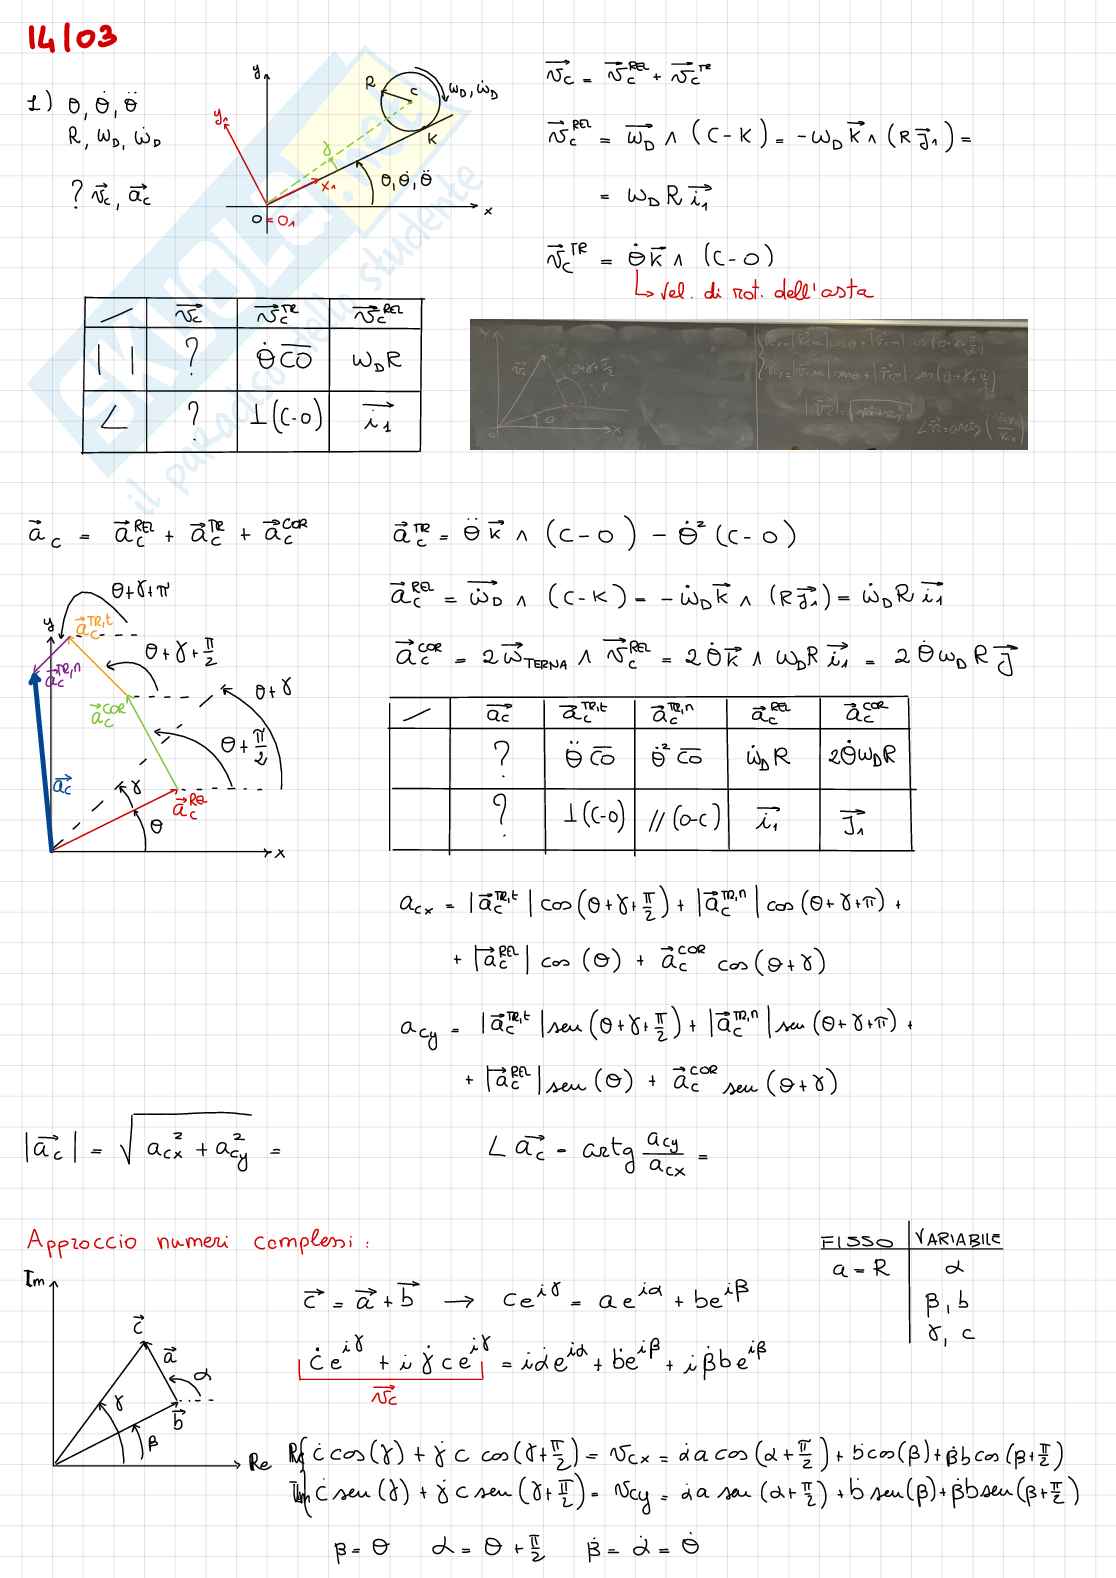 14/03
1) θ, θ̇, θ̈
R, ω_D, ω̇_D
? v⃗_C, a⃗_C
y
y₁
R
C
ω_D, ω̇_D
K
γ
x₁
θ, θ̇, θ̈
O = O₁
x
v⃗_C = v⃗_C^REL + v⃗_C^TR
v⃗_C^REL = ω⃗_D ∧ (C-K) = -ω_D k⃗ ∧ (R j⃗₁) =
= ω_D R i⃗₁
v⃗_C^TR = θ̇ k⃗ ∧ (C-O)
↳ vel. di rot. dell'asta
v⃗_C v⃗_C^TR v⃗_C^REL
| | ? θ̇ CO ω_D R
∠ ? ⊥(C-O) i⃗₁
SKUOLA.net
il paradiso dello studente
a⃗_C = a⃗_C^REL + a⃗_C^TR + a⃗_C^COR
a⃗_C^TR = θ̈ k⃗ ∧ (C-O) - θ̇² (C-O)
a⃗_C^REL = ω̇⃗_D ∧ (C-K) = -ω̇_D k⃗ ∧ (R j⃗₁) = ω̇_D R i⃗₁
a⃗_C^COR = 2 ω⃗_TERNA ∧ v⃗_C^REL = 2 θ̇ k⃗ ∧ ω_D R i⃗₁ = 2 θ̇ ω_D R j⃗
θ+γ+π
y
a⃗_C^TR,t
θ+γ+π/2
a⃗_C^TR,n
a⃗_C^COR
θ+γ
θ+π/2
a⃗_C
γ
a⃗_C^REL
θ
x
a⃗_C a⃗_C^TR,t a⃗_C^TR,n a⃗_C^REL a⃗_C^COR
? θ̈ CO θ̇² CO ω̇_D R 2θ̇ω_D R
? ⊥(C-O) // (O-C) i⃗₁ j⃗₁
a_Cx = |a⃗_C^TR,t| cos(θ+γ+π/2) + |a⃗_C^TR,n| cos(θ+γ+π) +
+ |a⃗_C^REL| cos(θ) + a⃗_C^COR cos(θ+γ)
a_Cy = |a⃗_C^TR,t| sen(θ+γ+π/2) + |a⃗_C^TR,n| sen(θ+γ+π) +
+ |a⃗_C^REL| sen(θ) + a⃗_C^COR sen(θ+γ)
|a⃗_C| = √(a_Cx² + a_Cy²) =
∠ a⃗_C = artg a_Cy/a_Cx =
Approccio numeri complessi:
FISSO VARIABILE
a = R α
β, b
γ, c
Im
c⃗
a⃗
α
γ
b⃗
β
Re
c⃗ = a⃗ + b⃗ → ce^iγ = ae^iα + be^iβ
ċe^iγ + iγ̇ce^iγ = iα̇e^iα + ḃe^iβ + iβ̇be^iβ
v⃗_C
Re{ ċcos(γ) + γ̇c cos(γ+π/2) = v_Cx = α̇a cos(α+π/2) + ḃcos(β) + β̇b cos(β+π/2)
Im{ ċsen(γ) + γ̇c sen(γ+π/2) = v_Cy = α̇a sen(α+π/2) + ḃsen(β) + β̇bsen(β+π/2)
β = θ α = θ + π/2 β̇ = α̇ = θ̇